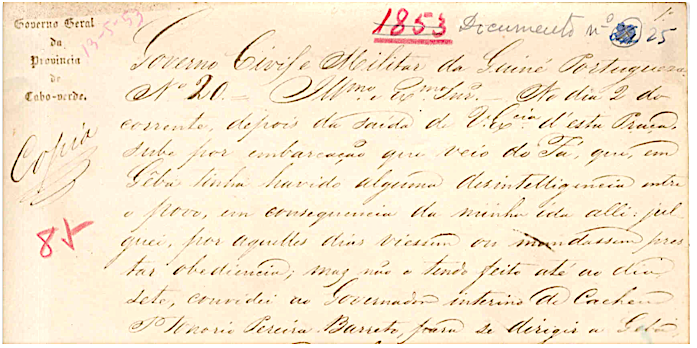 Governo Geral
da
Provincia
de
Cabo-verde.
13-5-53
1853
Documento nº
1º
25
Copia
85
Governo Civil e Militar da Guiné Portugueza
Nº 20 = Illmo. e Exmo Snr. = No dia 2 do
corrente, depois da saida de V. Exª. d'esta Praça,
sube por embarcação que veio do Fá, que, em
Gêba tinha havido alguma desintelligencia entre
o povo, em consequencia da minha ida alli: jul
guei, por aquelles dias viessem ou mandassem pres
tar obediencia; mas não o tendo feito até ao dia
sete, convidei ao Governador interino de Cacheu
Honorio Pereira Barreto, para se dirigir a Gêba